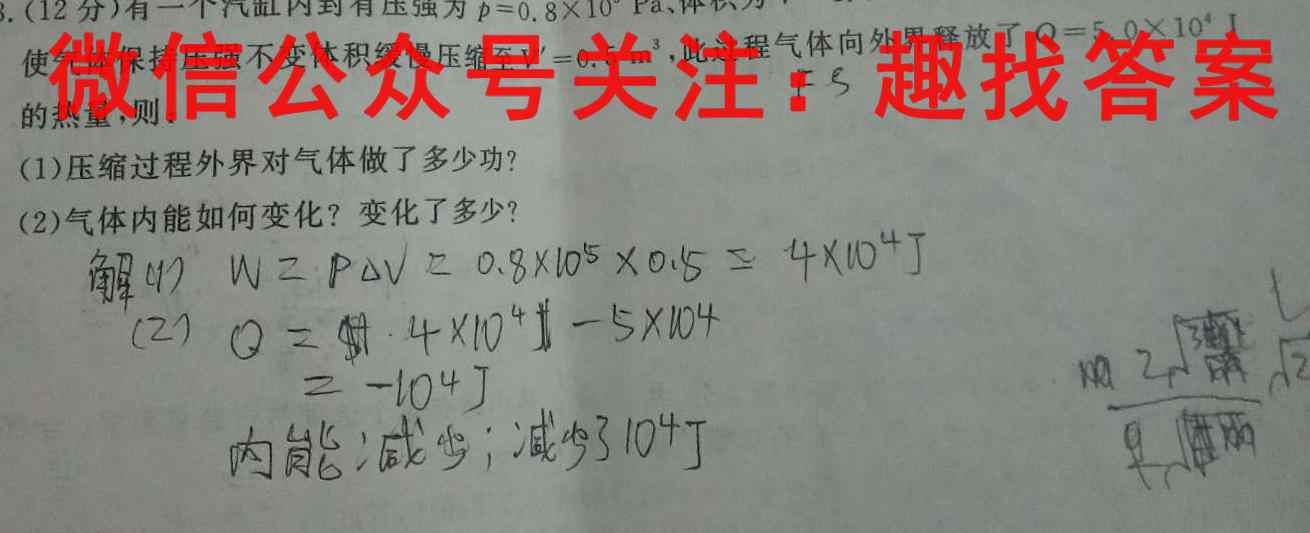 3.(12分)有一个汽缸内封有压强为p=0.8×10⁵ Pa、体积为
使气体保持压强不变体积缓慢压缩至V′=0.5 m³,此过程气体向外界释放了Q=5.0×10⁴ J
微信公众号关注：趣找答案
的热量,则:
(1)压缩过程外界对气体做了多少功?
(2)气体内能如何变化? 变化了多少?
解(1) W = P△V = 0.8×10⁵×0.5 = 4×10⁴J
(2) Q = 4×10⁴ -5×104
= -104J
内能减少；减少了104J